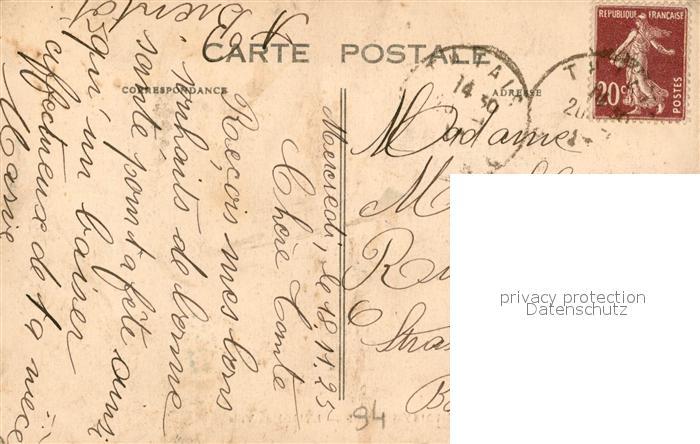 CARTE POSTALE
CORRESPONDANCE
ADRESSE
REPUBLIQUE FRANÇAISE
20c
POSTES
14 30
Mercredi, le 18.11.25
Chère Tante
Reçois mes bons
souhaits de bonne
santé pour ta fête ainsi
qu'un baiser
affectueux de ta nièce
Marie
A Bientôt
Madame
M
Ru
Stras
94
privacy protection
Datenschutz